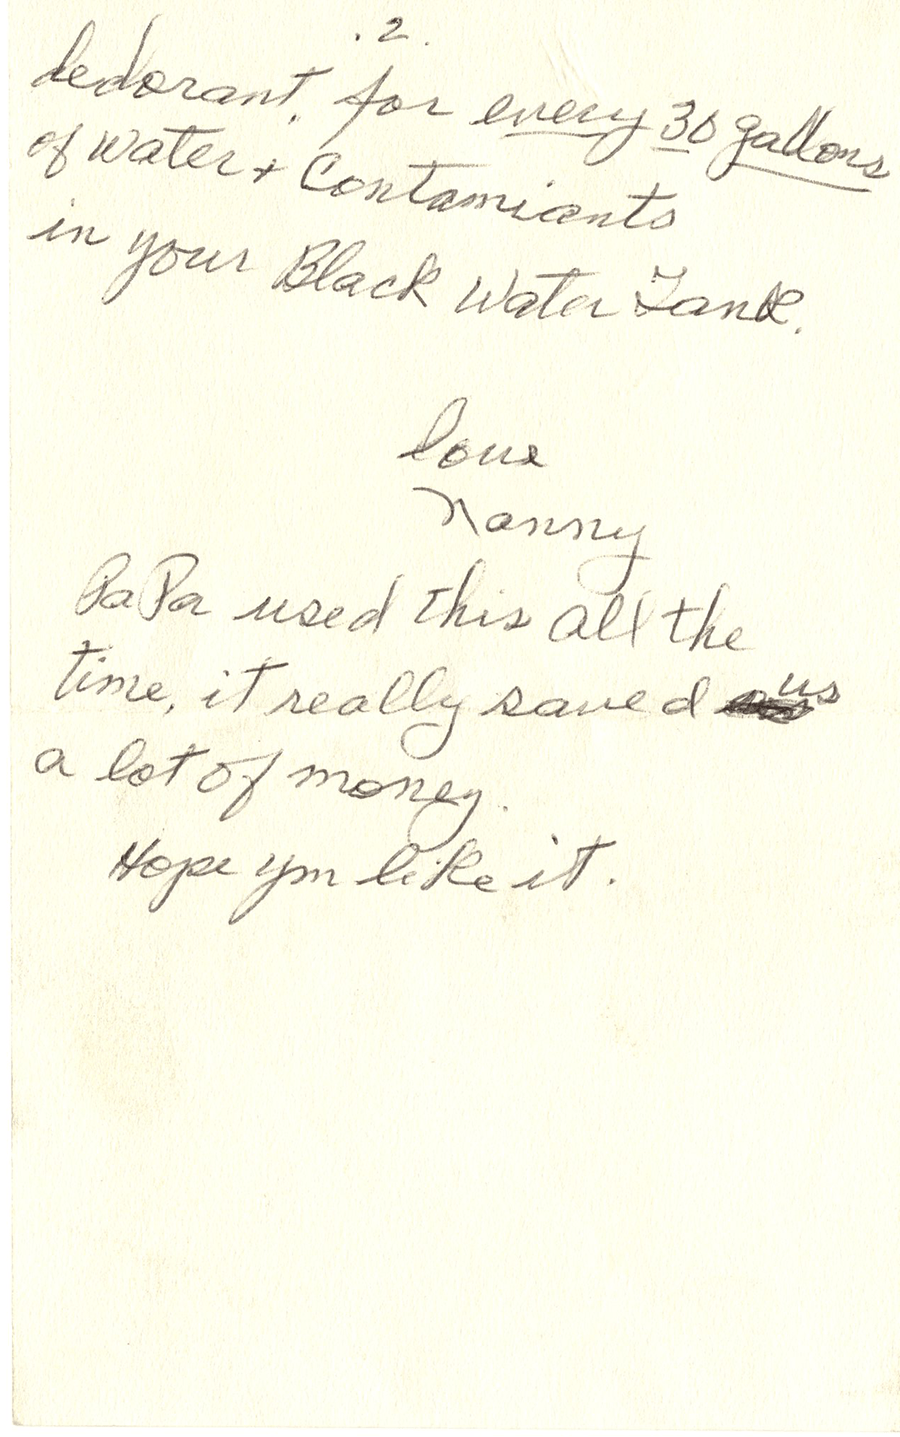 .2.
dedorant. for every 30 gallons
of water + Contamiants
in your Black Water Tank.
love
Nanny
PaPa used this all the
time, it really saved us
a lot of money.
Hope you like it.